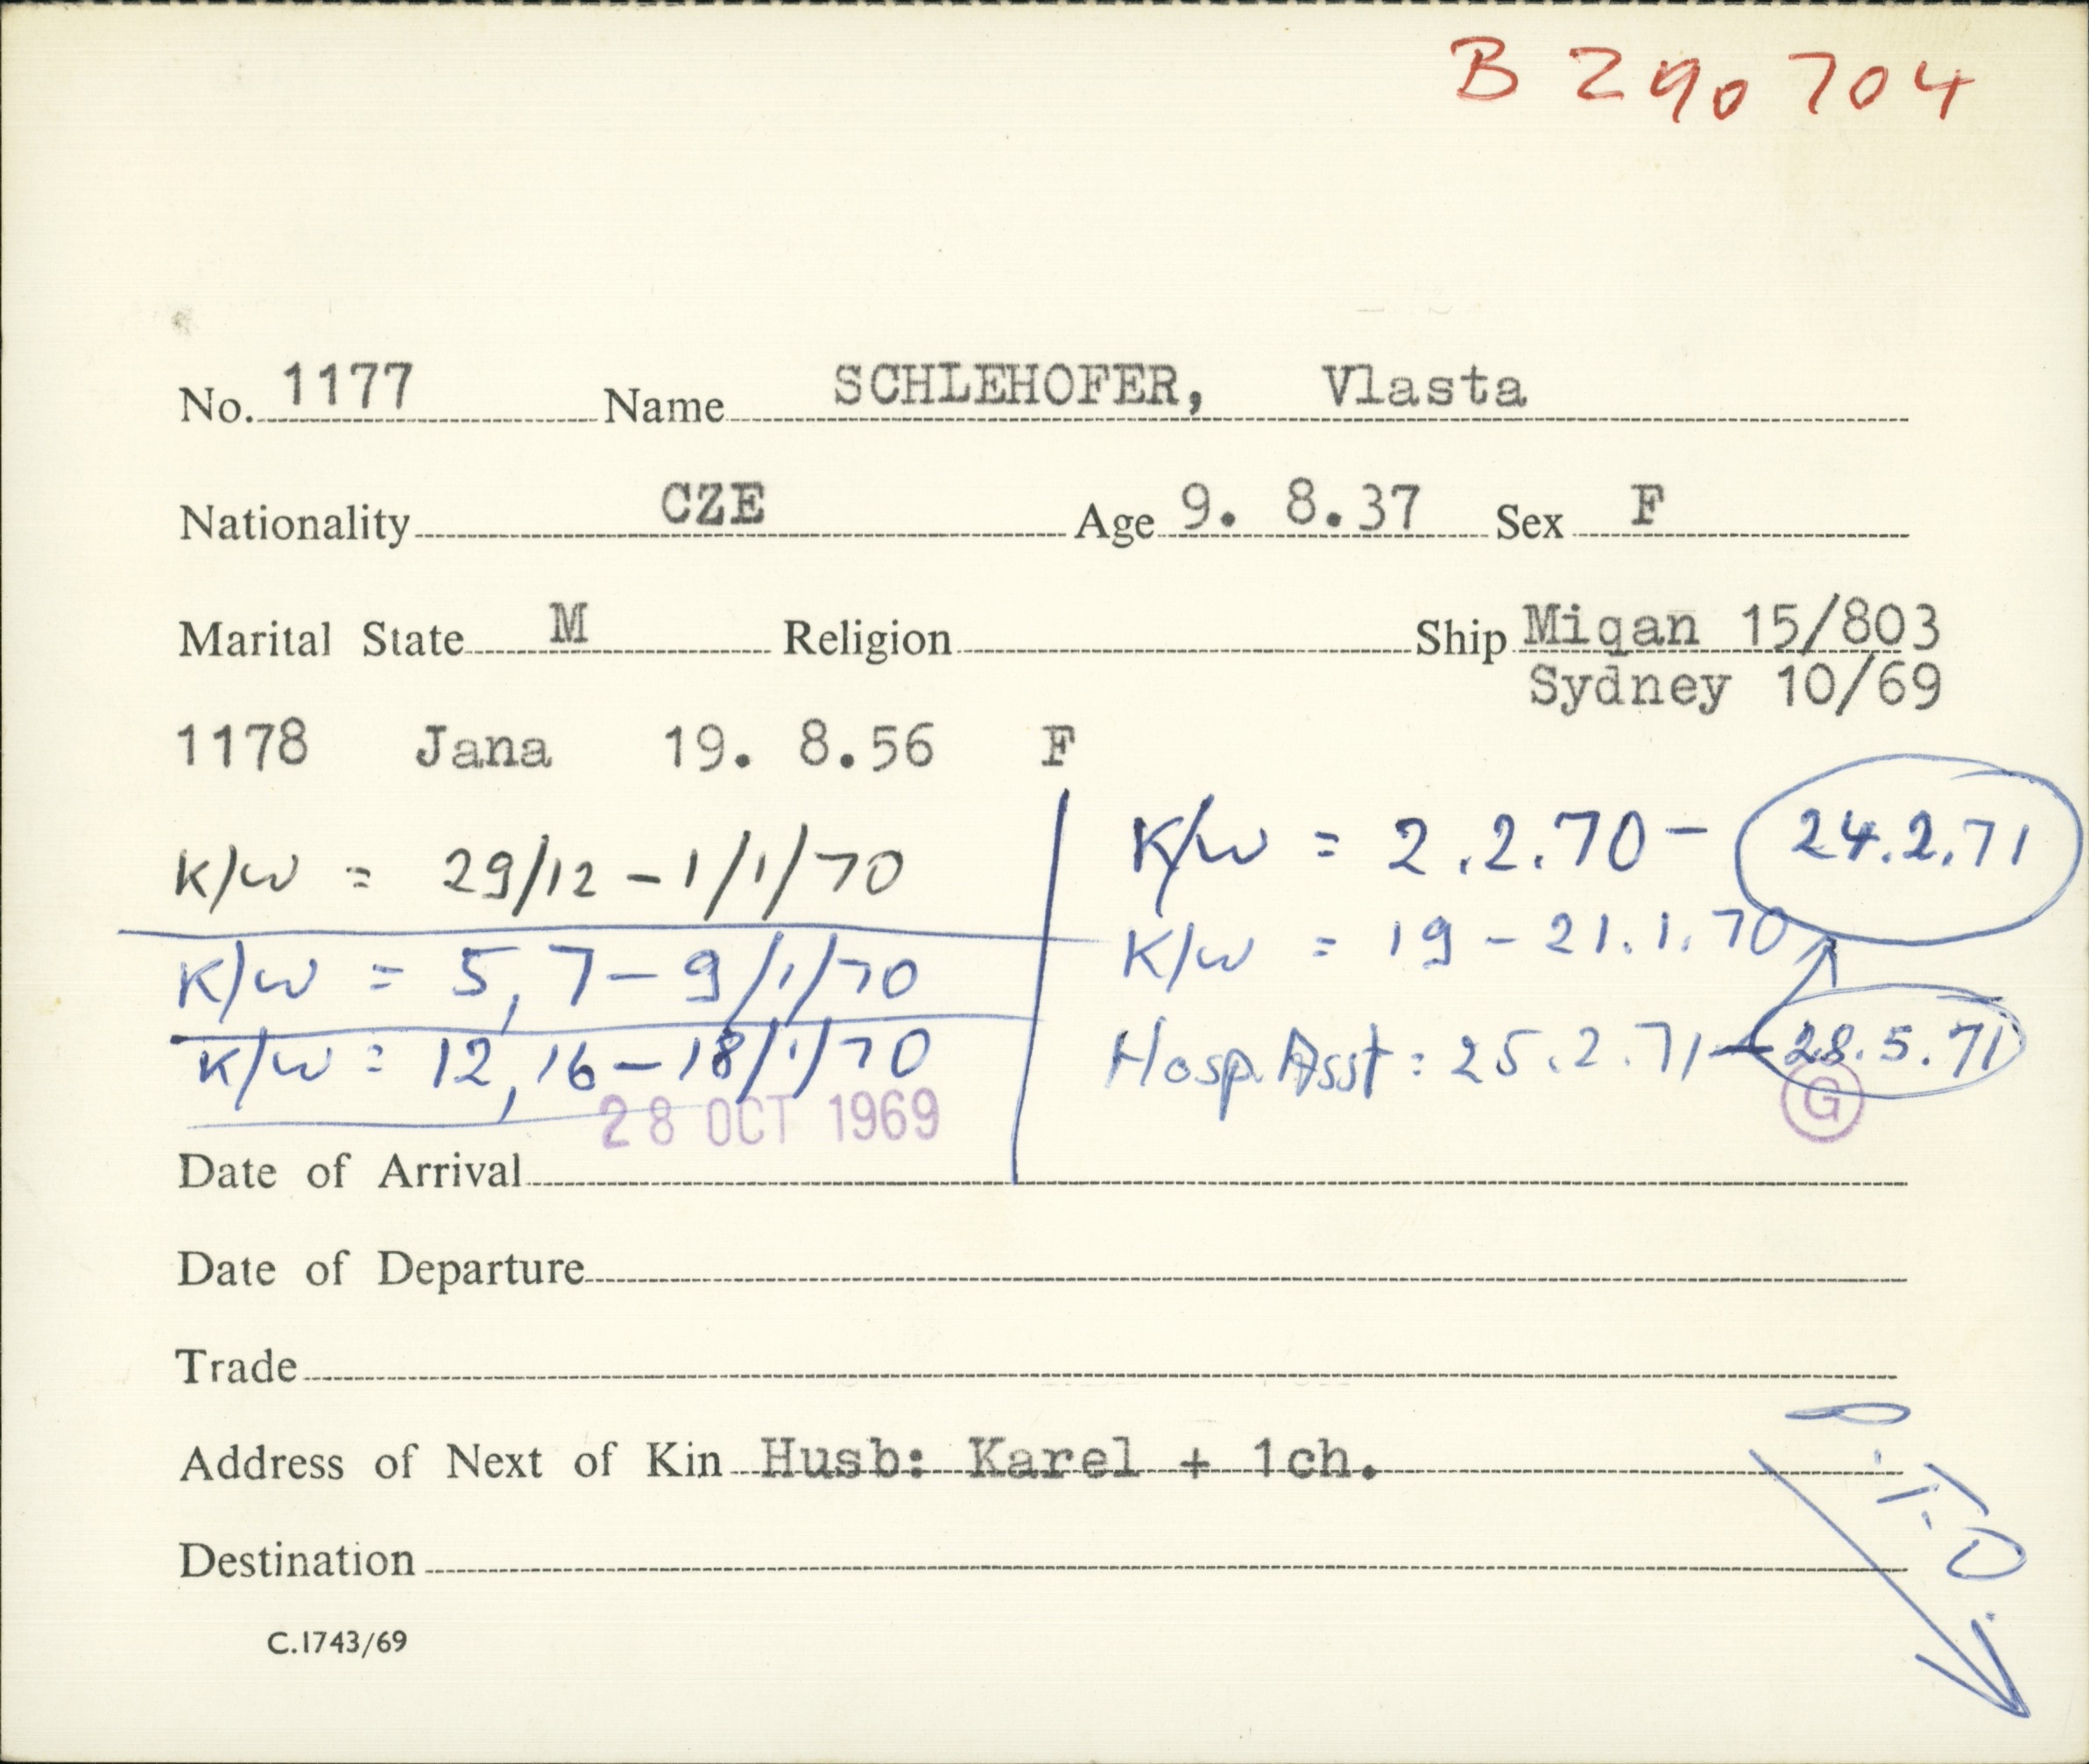 B 290704
No. 1177 Name SCHLEHOFER, Vlasta
Nationality CZE Age 9. 8.37 Sex F
Marital State M Religion Ship Migan 15/803
Sydney 10/69
1178 Jana 19. 8.56 F
K/W = 29/12 - 1/1/70
K/W = 5, 7 - 9/1/70
K/W = 12, 16 - 18/1/70
K/W = 2.2.70 - 24.2.71
K/W = 19 - 21.1.70
Hosp. Asst: 25.2.71 - 28.5.71
G
28 OCT 1969
Date of Arrival
Date of Departure
Trade
Address of Next of Kin Husb: Karel + 1ch.
Destination
P.T.O.
C.1743/69